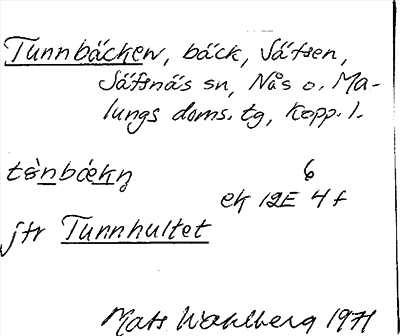 Tunnbäcken, bäck, Säfsen,
Säfsnäs sn, Nås o. Ma-
lungs doms. tg, Kopp. l.
tɵ̀nbækŋ̩ 6
ek 12E 4f
jfr Tunnhultet
Mats Wahlberg 1971